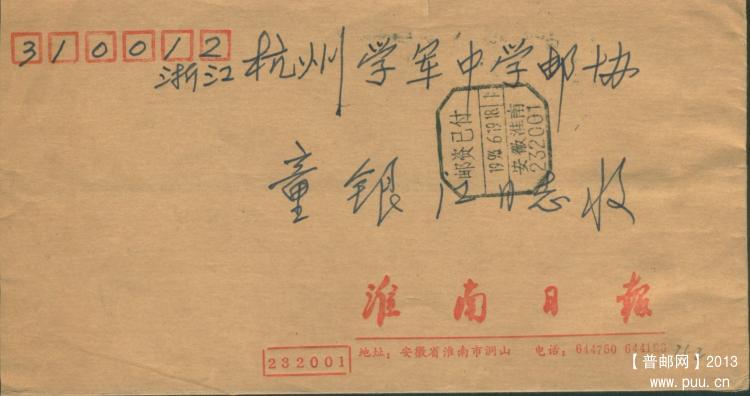 310012
浙江杭州学军中学邮协
邮资已付
安徽淮南
232001
童银江同志收
淮南日报
地址：安徽省淮南市洞山 电话：644750
232001
【普邮网】2013
www.puu.cn